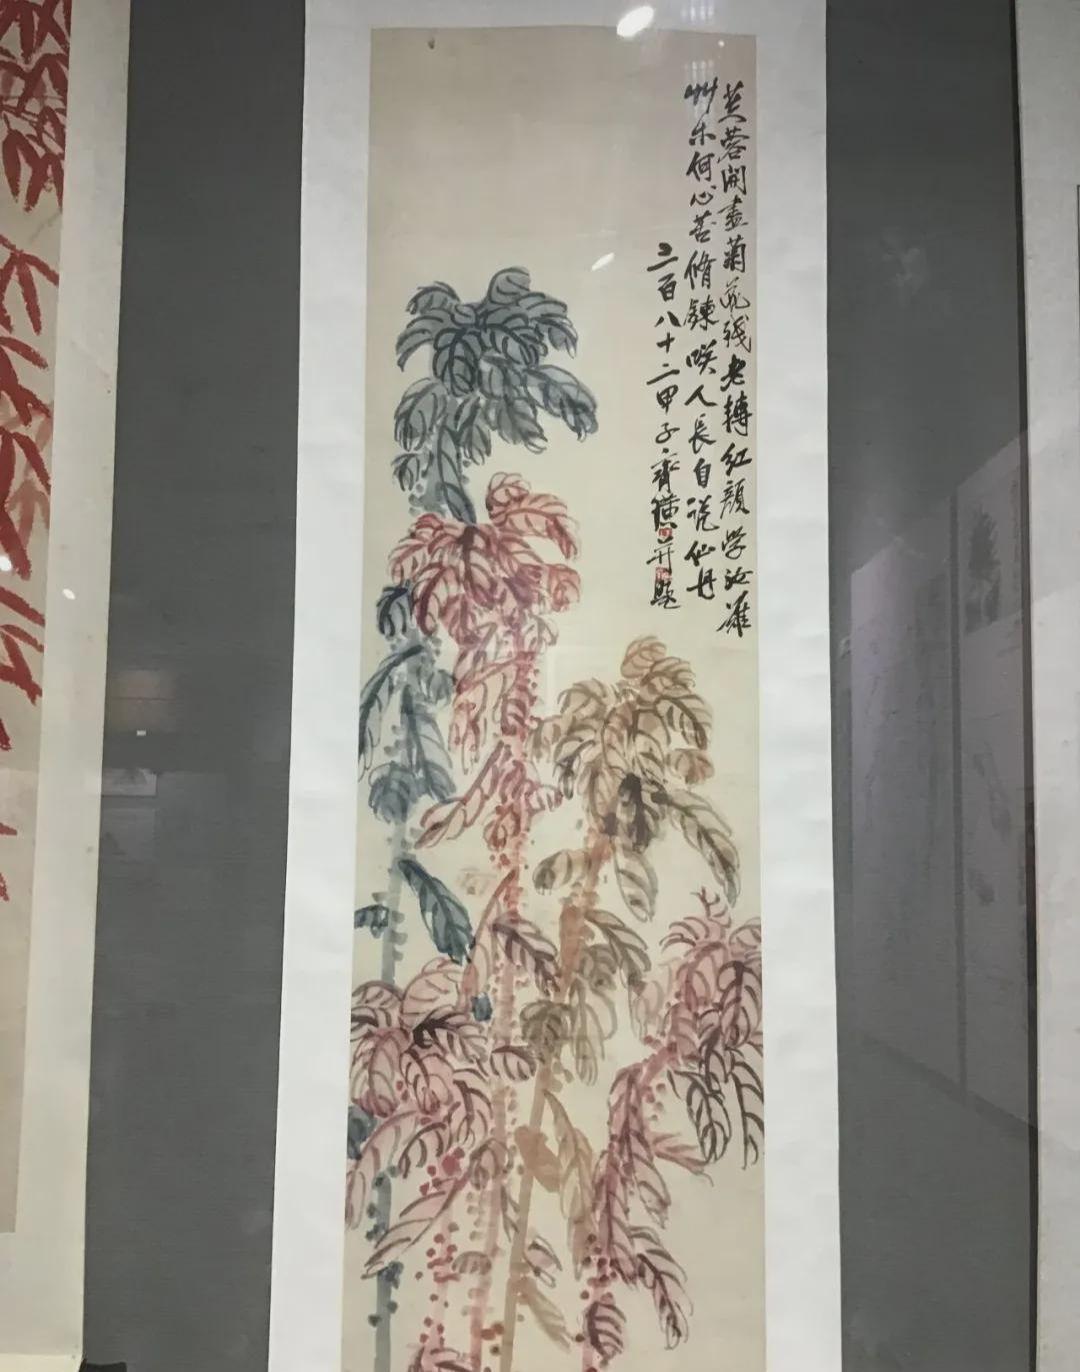 芙蓉開盡菊花殘老轉紅顏學汝難
艸木何心苦脩鍊咲人長自說仙丹
三百八十二甲子齊璜并題